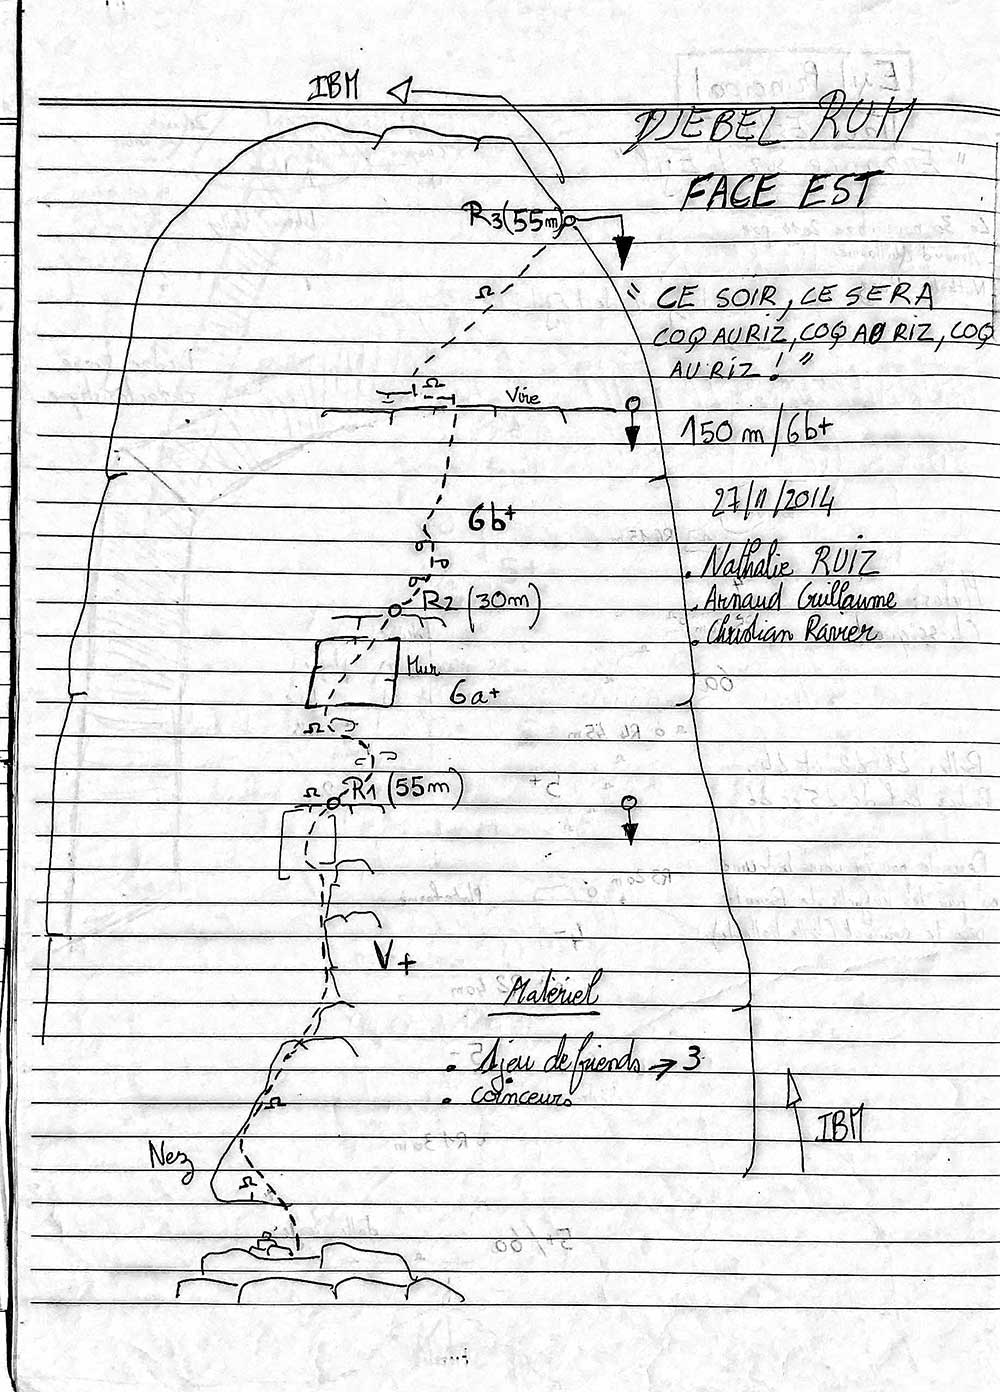 IBM
DJEBEL RUM
FACE EST
R3(55m)
"CE SOIR, CE SERA
COQ AU RIZ, COQ AU RIZ, COQ
AU RIZ ! "
Vire
150 m / 6b+
27/11/2014
6b+
. Nathalie RUIZ
. Arnaud Guillaume
. Christian Ravier
R2 (30m)
Mur
6a+
R1 (55m)
V+
Matériel
. 1 jeu de friends → 3
. coinceurs
IBM
Nez